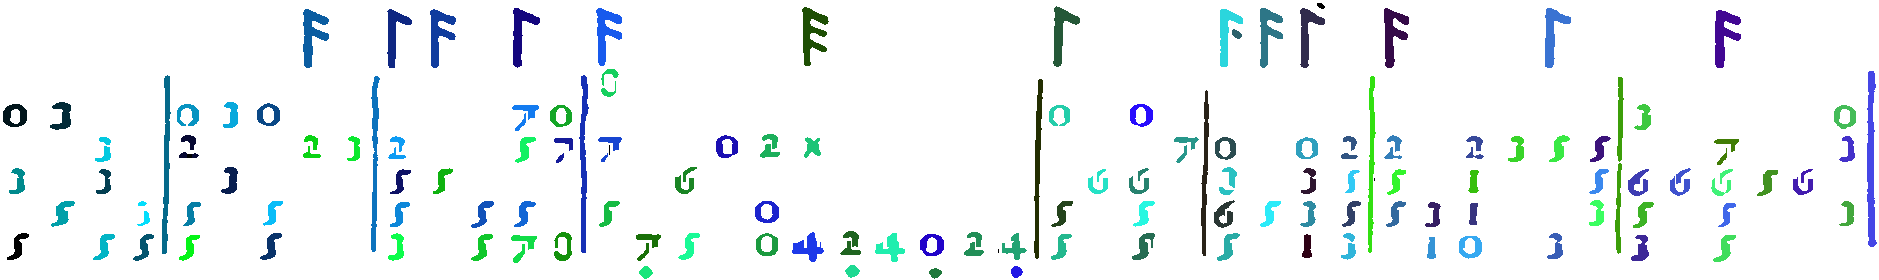 0
0 3 | 0 3 0 | 7 0 | | 0 0 | | | 3 0 |
3 | 2 2 3 | 2 5 7 | 7 0 2 x | 7 | 0 0 2 | 2 2 3 5 5 | 7 3 |
3 3 | 3 | 5 5 | 6 | 6 6 | 3 3 5 | 5 1 5 | 6 6 6 5 6 |
5 3 | 5 5 | 5 5 5 | 5 0 | 5 5 | 6 5 3 5 | 5 3 1 3 | 5 5 3 |
5 5 5 | 5 5 | 3 5 7 0 | 7 5 0 4 2 4 0 2 4 | 5 5 | 5 1 3 | 1 0 3 | 3 5 |